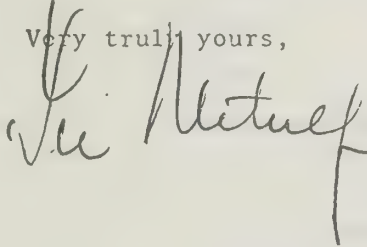 Very truly yours,
Lee Metcalf